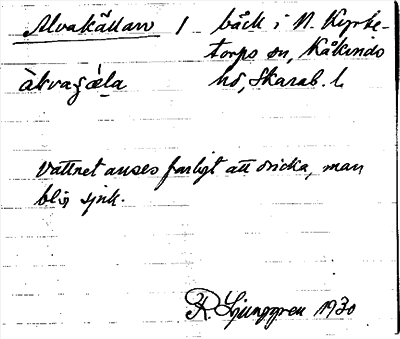 Alvakällan 1 bäck i N. Kyrke-
torps sn, Kåkinds
àlvaçæ̀la hd, Skarab. l.
Vattnet anses farligt att dricka, man
blir sjuk.
R. Ljunggren 1930